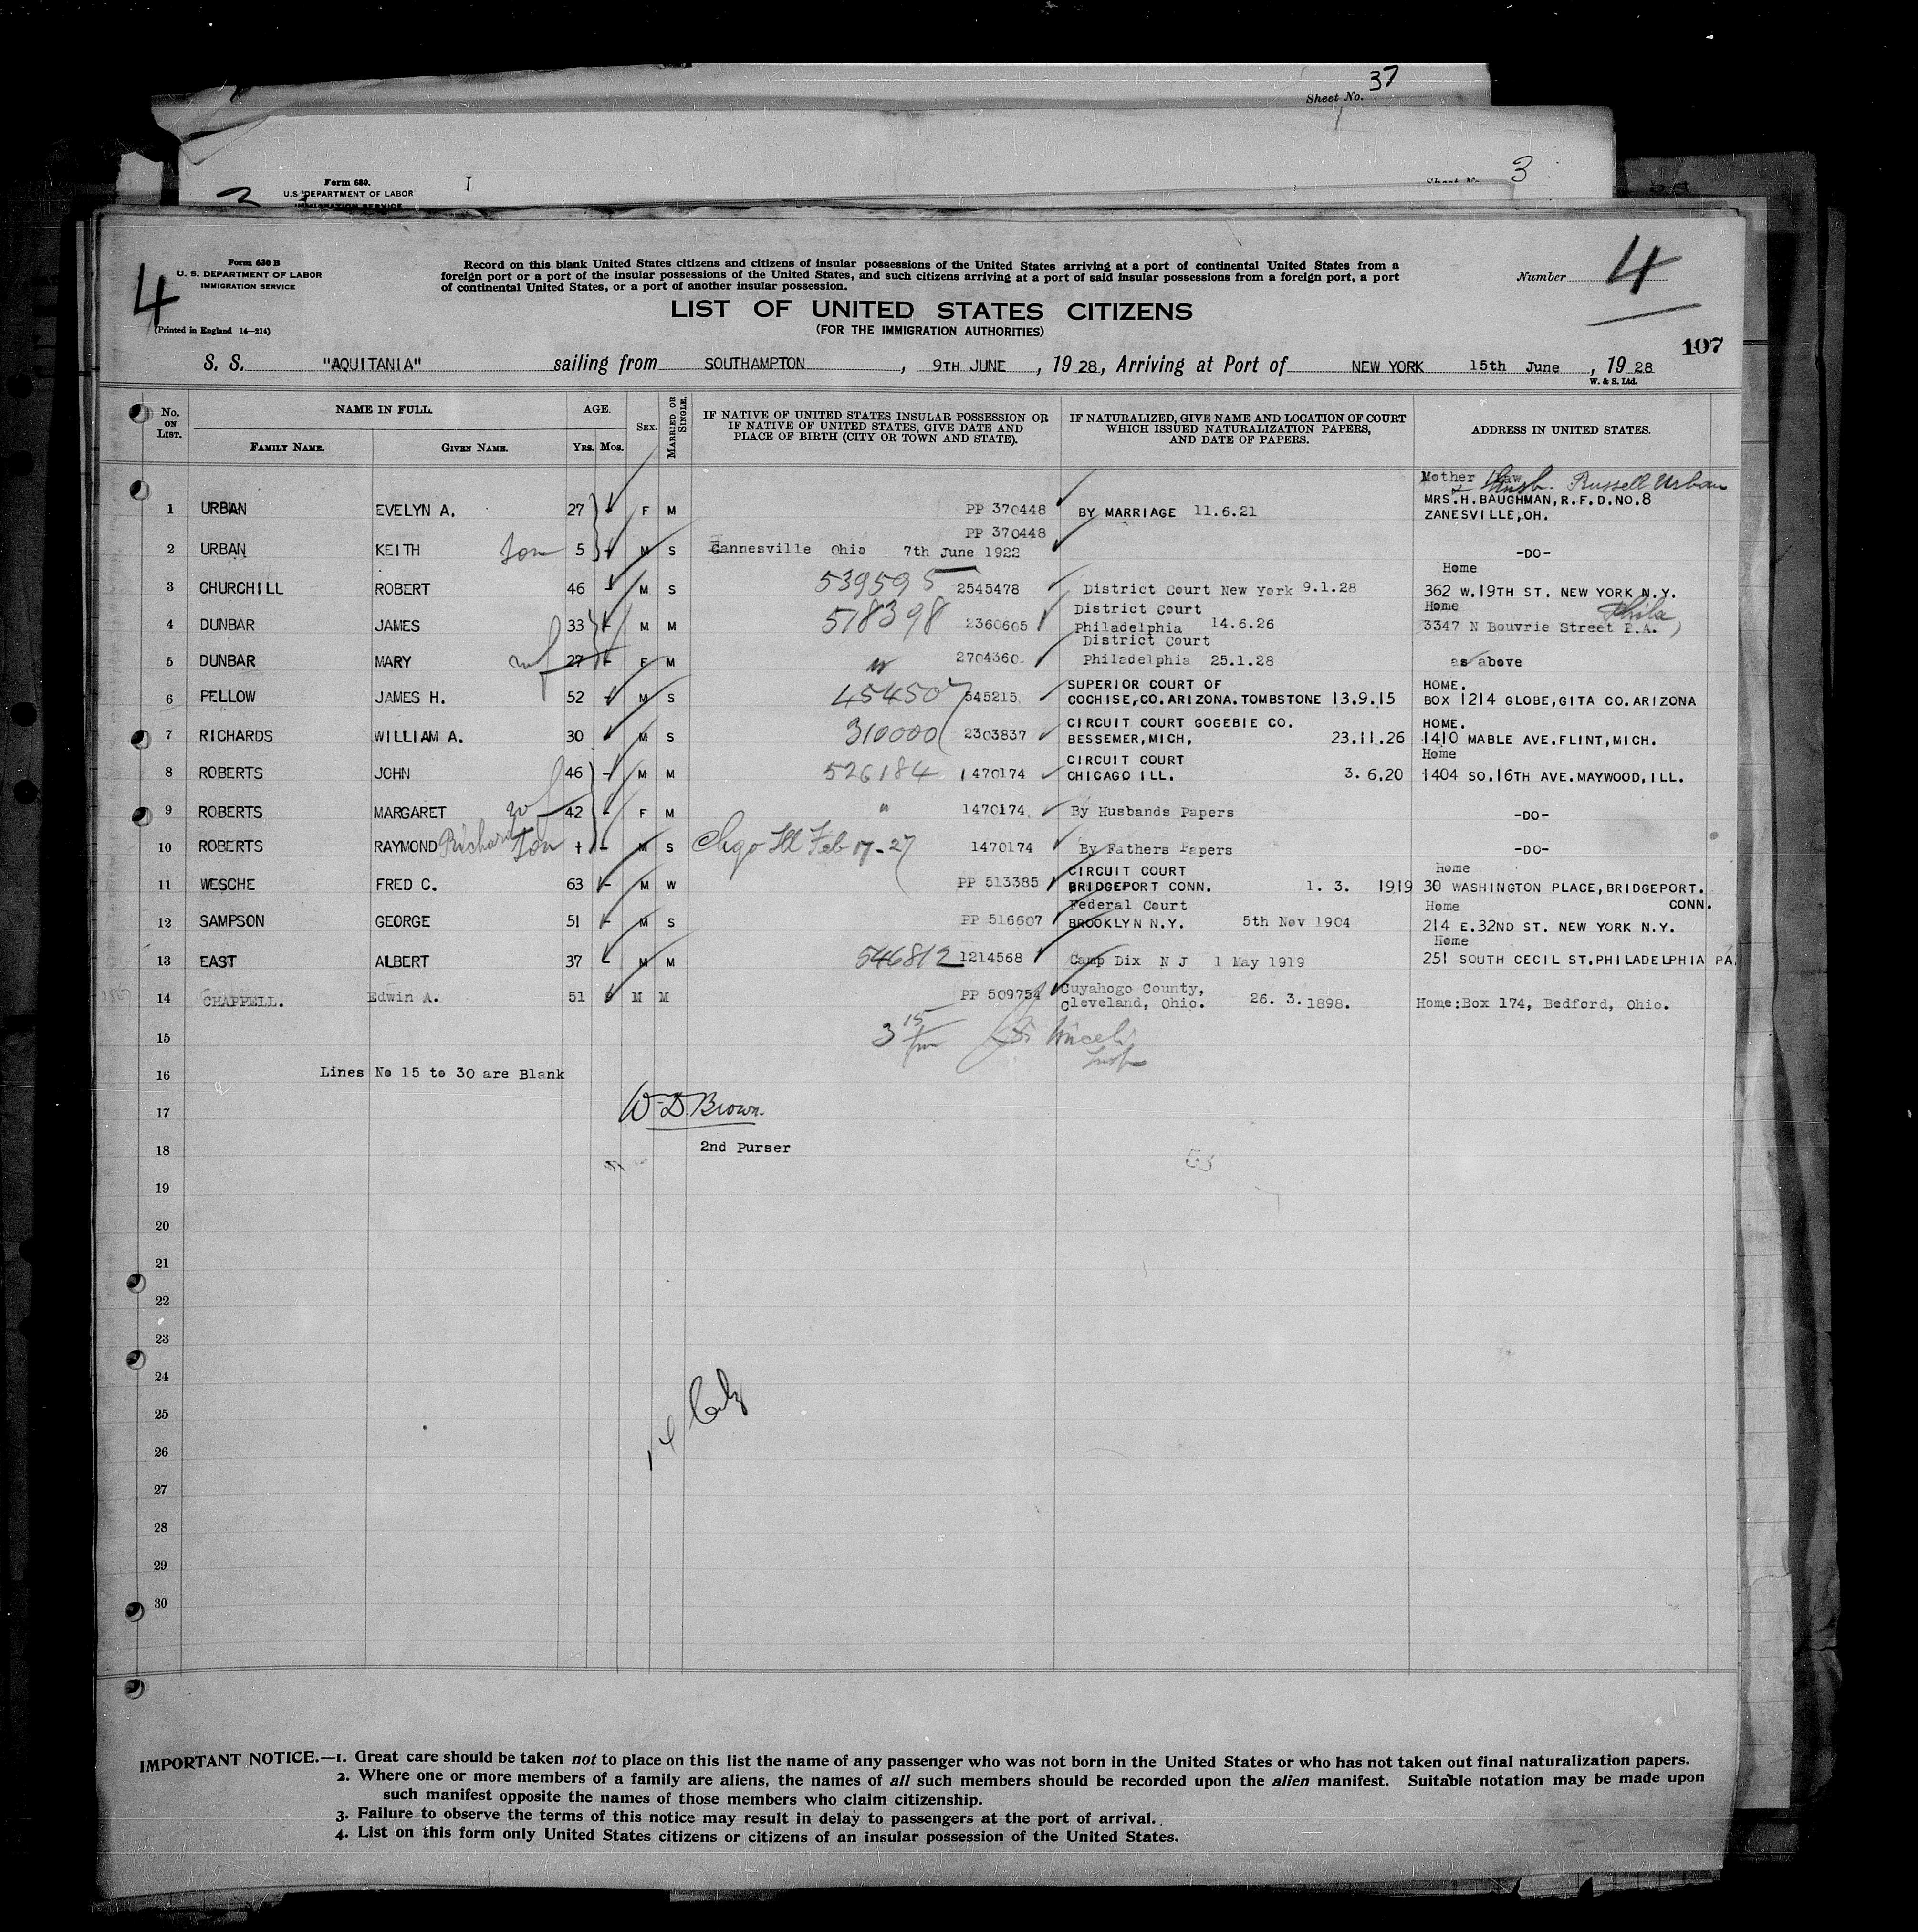 Sheet No. 37
3
Form 680.
U.S. DEPARTMENT OF LABOR
IMMIGRATION SERVICE
4
Form 630 B
U. S. DEPARTMENT OF LABOR
IMMIGRATION SERVICE
(Printed in England 14—214)
Record on this blank United States citizens and citizens of insular possessions of the United States arriving at a port of continental United States from a
foreign port or a port of the insular possessions of the United States, and such citizens arriving at a port of said insular possessions from a foreign port, a port
of continental United States, or a port of another insular possession.
Number 4
LIST OF UNITED STATES CITIZENS
(FOR THE IMMIGRATION AUTHORITIES)
107
S. S. "AQUITANIA" sailing from SOUTHAMPTON, 9TH JUNE, 1928, Arriving at Port of NEW YORK 15th June, 1928
W. & S. Ltd.
No. ON LIST. NAME IN FULL. FAMILY NAME. GIVEN NAME. AGE. YRS. MOS. SEX. MARRIED OR SINGLE. IF NATIVE OF UNITED STATES INSULAR POSSESSION OR IF NATIVE OF UNITED STATES, GIVE DATE AND PLACE OF BIRTH (CITY OR TOWN AND STATE). IF NATURALIZED, GIVE NAME AND LOCATION OF COURT WHICH ISSUED NATURALIZATION PAPERS, AND DATE OF PAPERS. ADDRESS IN UNITED STATES.
Mother Law & Husb. Russell Urban
1 URBAN EVELYN A. 27 - F M PP 370448 BY MARRIAGE 11.6.21 MRS.H.BAUGHMAN,R.F.D.NO.8
ZANESVILLE,OH.
PP 370448
2 URBAN KEITH Son 5 - M S Gannesville Ohio 7th June 1922 -DO-
Home
3 CHURCHILL ROBERT 46 - M S 539595 2545478 District Court New York 9.1.28 362 W.19TH ST. NEW YORK N.Y.
District Court Home Phila
4 DUNBAR JAMES 33 - M M 518398 2360605 Philadelphia 14.6.26 3347 N Bouvrie Street P.A.
District Court
5 DUNBAR MARY wf 27 - F M " 2704360 Philadelphia 25.1.28 as above
SUPERIOR COURT OF HOME.
6 PELLOW JAMES H. 52 - M S 454507 545215 COCHISE,CO.ARIZONA.TOMBSTONE 13.9.15 BOX 1214 GLOBE,GITA CO.ARIZONA
CIRCUIT COURT GOGEBIE CO. HOME.
7 RICHARDS WILLIAM A. 30 - M S 310000 2303837 BESSEMER,MICH, 23.11.26 1410 MABLE AVE.FLINT,MICH.
CIRCUIT COURT Home
8 ROBERTS JOHN 46 - M M 526184 1470174 CHICAGO ILL. 3.6.20 1404 SO.16TH AVE.MAYWOOD,ILL.
9 ROBERTS MARGARET wf 42 - F M " 1470174 By Husbands Papers -DO-
10 ROBERTS RAYMOND Richard Son 1 - M S Chgo Ill Feb 17-27 1470174 By Fathers Papers -DO-
CIRCUIT COURT home
11 WESCHE FRED C. 63 - M W PP 513385 BRIDGEPORT CONN. 1. 3. 1919 30 WASHINGTON PLACE,BRIDGEPORT.
Federal Court Home CONN.
12 SAMPSON GEORGE 51 - M S PP 516607 BROOKLYN N.Y. 5th Nov 1904 214 E.32ND ST. NEW YORK N.Y.
Home
13 EAST ALBERT 37 - M M 546812 1214568 Camp Dix N J 1 May 1919 251 SOUTH CECIL ST.PHILADELPHIA PA.
14 CHAPPELL. Edwin A. 51 M M PP 509754 Cuyahogo County,
Cleveland, Ohio. 26. 3.1898. Home:Box 174, Bedford, Ohio.
15 3 15
Insp
16 Lines No 15 to 30 are Blank
17 W. D. Brown.
18 2nd Purser
19
20
21
22
23
24
25
26
27
28
29
30
IMPORTANT NOTICE.—1. Great care should be taken not to place on this list the name of any passenger who was not born in the United States or who has not taken out final naturalization papers.
2. Where one or more members of a family are aliens, the names of all such members should be recorded upon the alien manifest. Suitable notation may be made upon
such manifest opposite the names of those members who claim citizenship.
3. Failure to observe the terms of this notice may result in delay to passengers at the port of arrival.
4. List on this form only United States citizens or citizens of an insular possession of the United States.